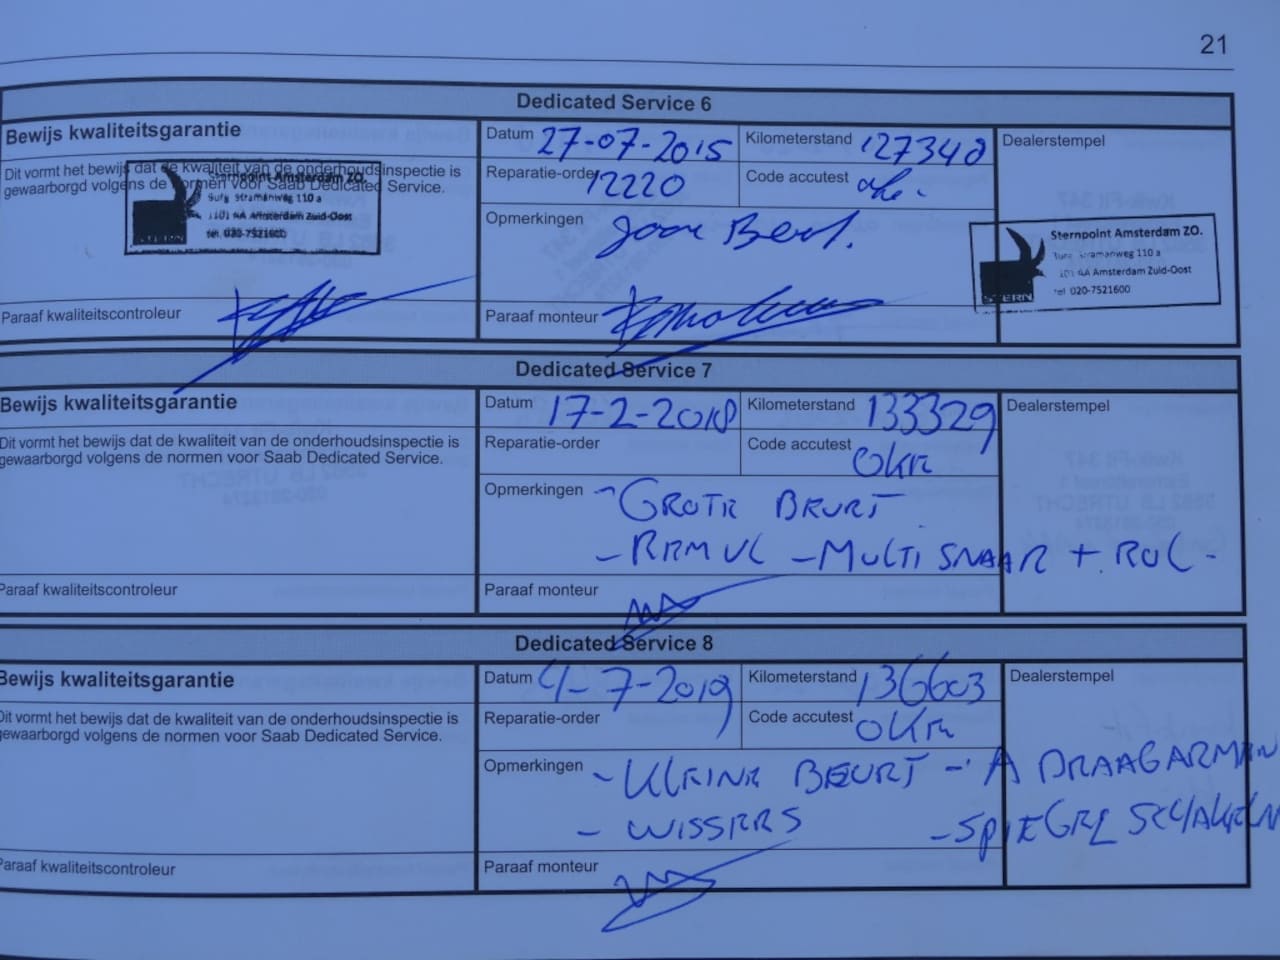 21
Dedicated Service 6
Bewijs kwaliteitsgarantie
Datum 27-07-2015
Kilometerstand 127348
Dealerstempel
Dit vormt het bewijs dat de kwaliteit van de onderhoudsinspectie is
gewaarborgd volgens de normen voor Saab Dedicated Service.
Sternpoint Amsterdam ZO.
Burg Stramanweg 110 a
1101 AA Amsterdam Zuid-Oost
tel. 020-7521600
STERN
Reparatie-order 12220
Code accutest
Opmerkingen
Sternpoint Amsterdam ZO.
Burg Stramanweg 110 a
1101 AA Amsterdam Zuid-Oost
tel 020-7521600
STERN
Paraaf kwaliteitscontroleur
Paraaf monteur
Dedicated Service 7
Bewijs kwaliteitsgarantie
Datum 17-2-2018
Kilometerstand 133329
Dealerstempel
Dit vormt het bewijs dat de kwaliteit van de onderhoudsinspectie is
gewaarborgd volgens de normen voor Saab Dedicated Service.
Reparatie-order
Code accutest OKE
Opmerkingen - GROTE BEURT
- REMVL - MULTISNAAR + ROL -
Paraaf kwaliteitscontroleur
Paraaf monteur
Dedicated Service 8
Bewijs kwaliteitsgarantie
Datum 4-7-2019
Kilometerstand 136603
Dealerstempel
Dit vormt het bewijs dat de kwaliteit van de onderhoudsinspectie is
gewaarborgd volgens de normen voor Saab Dedicated Service.
Reparatie-order
Code accutest OKE
Opmerkingen - KLEINE BEURT - A DRAAGARMEN
- WISSERS - SPIEGEL SCHAKELN
Paraaf kwaliteitscontroleur
Paraaf monteur